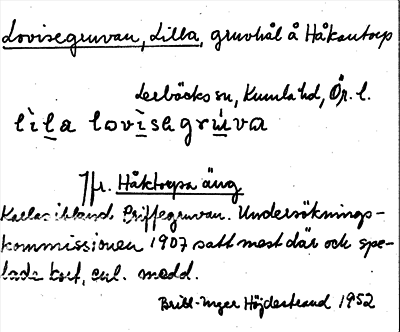 Lovisegruvan, Lilla, gruvhål å Håkantorp
Lerbäcks sn, Kumla hd, Ör. l.
lìla lovìsagrúva
Jfr. Håktorpsa äng
Kallas ibland Griffegruvan. Undersöknings-
kommissionen 1907 satt mest där och spe-
lade kort, enl. medd.
Britt-Inger Höjdestrand 1952